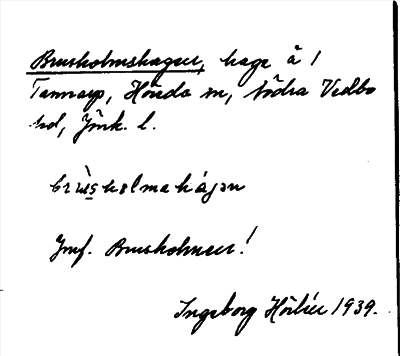 Brusholmshagen, hage å /
Tannarp, Hönda sn, Södra Vedbo
hd, Jönk. l.
brùsholmahágən
Jmf. Brusholmen!
Ingeborg Hörlén 1939.